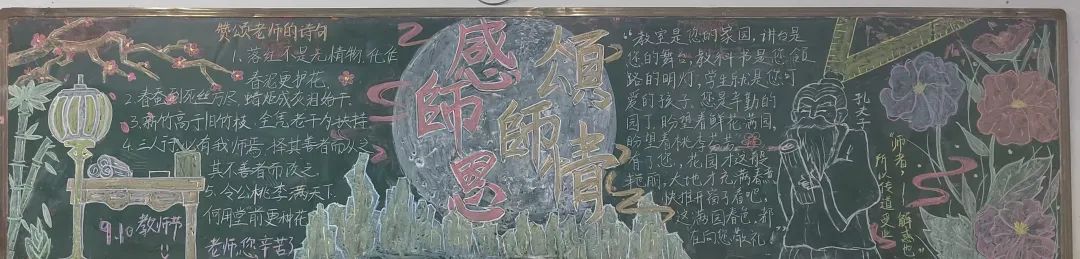 赞颂老师的诗句
1、落红不是无情物,化作
春泥更护花。
2、春蚕到死丝方尽,蜡炬成灰泪始干
3、新竹高于旧竹枝,全凭老干为扶持
4、三人行必有我师焉,择其善者而从之
其不善者而改之
5、令公桃李满天下
何用堂前更种花
老师,您辛苦了
9.10教师节
感師恩
頌師情
"教室是您的家园,讲台是
您的舞台,教科书是您领
路的明灯,学生就是您可
爱的孩子,您是辛勤的
园丁,盼望着鲜花满园,
盼望着桃李
有了您,花园才这般
艳丽,大地才充满春意
快推开窗子看吧,
这满园春色,都
在向您敬礼!"
孔夫子
"师者,
所以传道受业
解惑也"